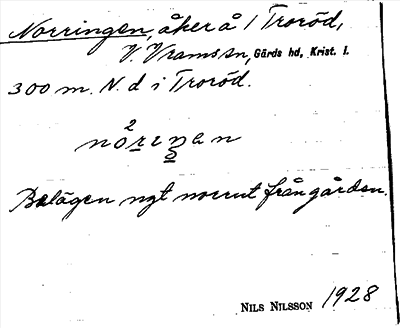 Norringen, åker å 1 Troröd,
V. Vrams sn, Gärds hd, Krist. l.
300 m. N. d i Troröd.
2
Belägen ngt norrut från gården.
NILS NILSSON 1928